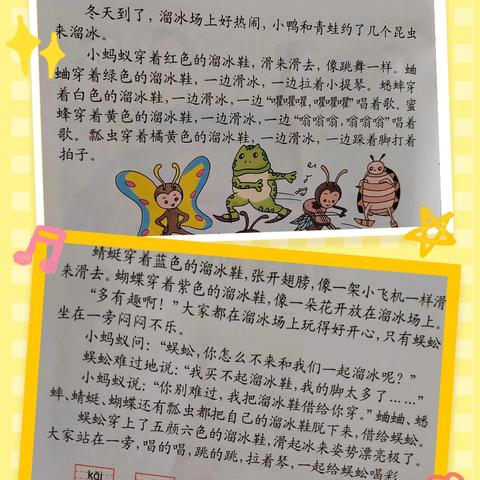 冬天到了，溜冰场上好热闹，小鸭和青蛙约了几个昆虫
来溜冰。
小蚂蚁穿着红色的溜冰鞋，滑来滑去，像跳舞一样。蛐
蛐穿着绿色的溜冰鞋，一边滑冰，一边拉着小提琴。蟋蟀穿
着白色的溜冰鞋，一边滑冰，一边“嚯嚯嚯，嚯嚯嚯”唱着歌。蜜
蜂穿着黄色的溜冰鞋，一边滑冰，一边“嗡嗡嗡，嗡嗡嗡”唱着
歌。瓢虫穿着橘黄色的溜冰鞋，一边滑冰，一边跺着脚打着
拍子。
蜻蜓穿着蓝色的溜冰鞋，张开翅膀，像一架小飞机一样滑
来滑去。蝴蝶穿着紫色的溜冰鞋，像一朵花开放在溜冰场上。
“多有趣啊！”大家都在溜冰场上玩得好开心，只有蜈蚣
坐在一旁闷闷不乐。
小蚂蚁问：“蜈蚣，你怎么不来和我们一起溜冰呢？”
蜈蚣难过地说：“我买不起溜冰鞋，我的脚太多了……”
小蚂蚁说：“你别难过，我把溜冰鞋借给你穿。”蛐蛐、蟋
蟀、蜻蜓、蝴蝶还有瓢虫都把自己的溜冰鞋脱下来，借给蜈蚣。
蜈蚣穿上了五颜六色的溜冰鞋，滑起冰来姿势漂亮极了。
大家站在一旁，唱的唱，跳的跳，拉着琴，一起给蜈蚣喝彩
kāi